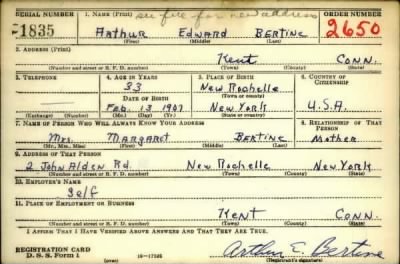 SERIAL NUMBER 1. NAME (Print) see file for new address ORDER NUMBER
1835 Arthur Edward Bertine 2650
(First) (Middle) (Last)
2. ADDRESS (Print)
Kent Conn.
(Number and street or R. F. D. number) (Town) (County) (State)
3. TELEPHONE 4. AGE IN YEARS 5. PLACE OF BIRTH 6. COUNTRY OF CITIZENSHIP
33 New Rochelle
DATE OF BIRTH (Town or county)
Feb. 13 1907 New York U.S.A.
(Exchange) (Number) (Mo.) (Day) (Yr.) (State or country)
7. NAME OF PERSON WHO WILL ALWAYS KNOW YOUR ADDRESS 8. RELATIONSHIP OF THAT PERSON
Mrs. Margaret Bertine Mother
(Mr., Mrs., Miss) (First) (Middle) (Last)
9. ADDRESS OF THAT PERSON
2 John Alden Rd. New Rochelle New York
(Number and street or R. F. D. number) (Town) (County) (State)
10. EMPLOYER'S NAME
Self
11. PLACE OF EMPLOYMENT OR BUSINESS
Kent Conn.
(Number and street or R. F. D. number) (Town) (County) (State)
I AFFIRM THAT I HAVE VERIFIED ABOVE ANSWERS AND THAT THEY ARE TRUE.
REGISTRATION CARD
D. S. S. Form 1 16—17105 Arthur E. Bertine
(Registrant's signature)